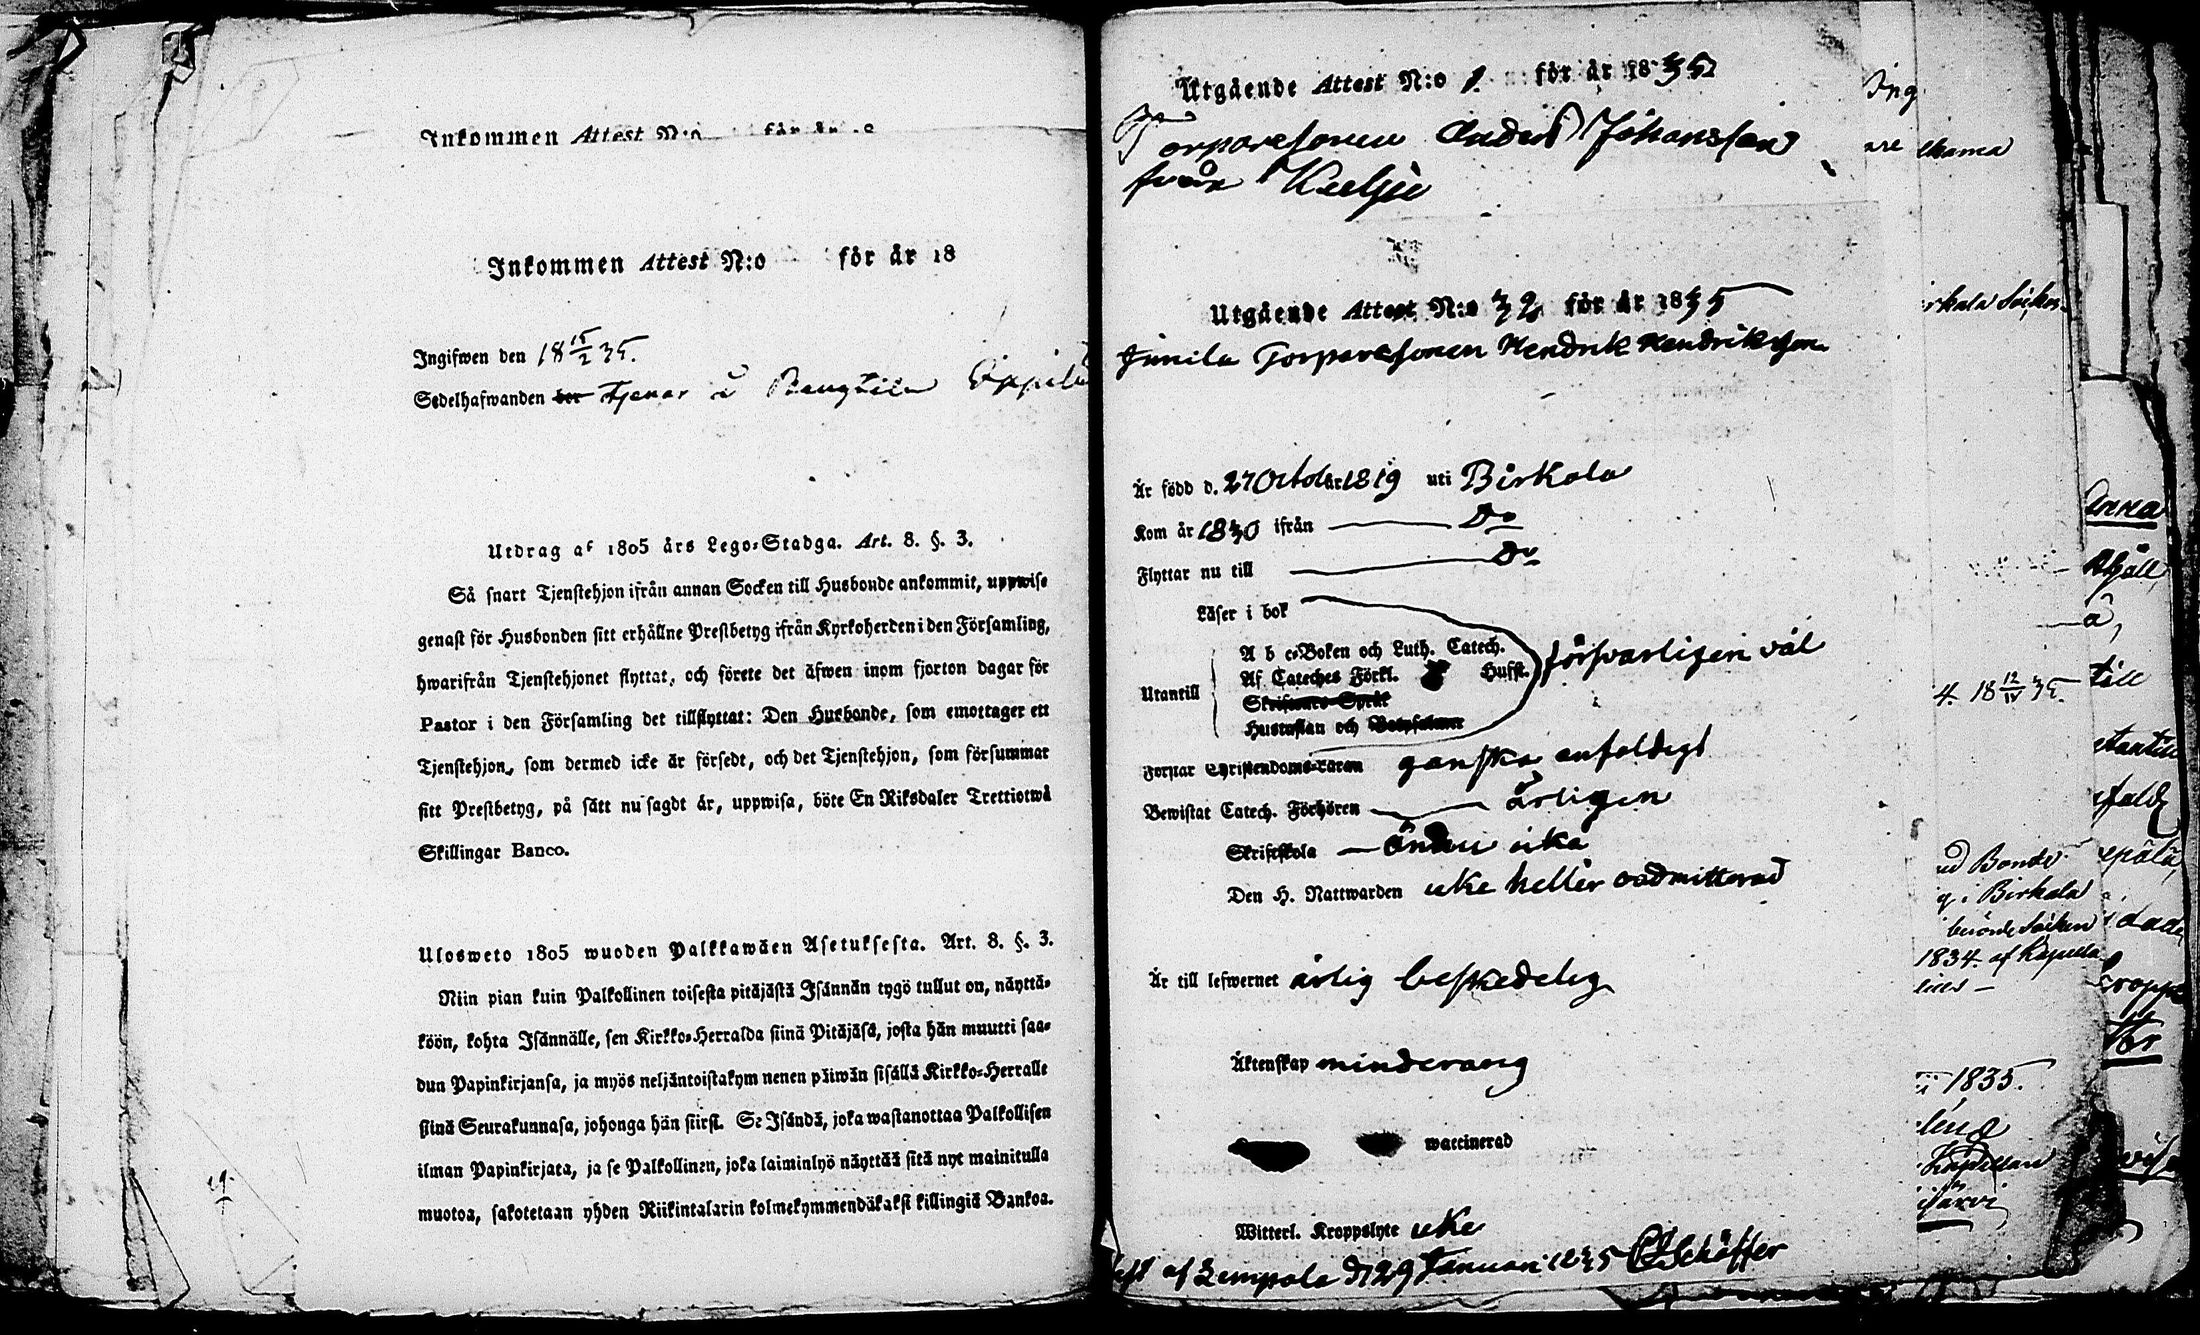 Inkommen Attest N:o för år 18
Inkommen Attest N:o för år 18
Ingifwen den 18 15/2 35.
Sedelhafwanden bor tjenar i
Utdrag af 1805 års Lego-Stadga. Art. 8. §. 3.
Så snart Tjenstehjon ifrån annan Socken till Husbonde ankommit, uppwise
genast för Husbonden sitt erhållne Prestbetyg ifrån Kyrkoherden i den Församling,
hwarifrån Tjenstehjonet flyttat, och förete det äfwen inom fjorton dagar för
Pastor i den Församling det tillflyttat: Den Husbonde, som emottager ett
Tjenstehjon, som dermed icke är försedt, och det Tjenstehjon, som försummar
sitt Prestbetyg, på sätt nu sagdt är, uppwisa, böte En Riksdaler Trettiotwå
Skillingar Banco.
Ulosweto 1805 wuoden Palkkawäen Asetuksesta. Art. 8. §. 3.
Niin pian kuin Palkollinen toisesta pitäjästä Isännän tygö tullut on, näyttä-
köön, kohta Isännälle, sen Kirkko-Herralda siinä Pitäjäsä, josta hän muutti saa-
dun Papinkirjansa, ja myös neljäntoistakymmenen päiwän sisällä Kirkko-Herralle
siinä Seurakunnasa, johonga hän siirst. Se Isändä, joka wastanottaa Palkollisen
ilman Papinkirjata, ja se Palkollinen, joka laiminlyö näyttää sitä nyt mainitulla
muotoa, sakotetaan yhden Riikintalarin kolmekymmendäkaksi killingiä Bankoa.
Utgående Attest N:o 1. för år 1835
Torparesonen Anders Johansson
från
Utgående Attest N:o 32 för år 1835
Torparesonen Hendrik Hendriksson
Är född d. 27 October 1819 uti Birkala
Kom år 1830 ifrån Do
Flyttar nu till Do
Läser i bok
A b c-Boken och Luth. Catech. försvarligen väl
Utantill Af Cateches Förkl. Hufst.
Skriftenes Språk
Hustaflan och Botpsalmer
Förstår Christendoms-Läran ganska enfaldigt
Bewistat Catech. Förhören årligen
Skriftskola ännu icke
Den H. Nattwarden icke heller admitterad
Är till lefwernet ärlig beskedelig
Äktenskap minderårig
waccinerad
Witterl. Kroppslyte icke
af Lempola d 29 Januari 1835 Schäffer
Ing
are
dkama
irkala Socken
Anna
till
4. 18 12/IV 35.
utantill
nfaldg
ud Bonde
g i Birkala
berörde Socken
1834. af Kapella
Kropps
1835.
Kapellan
järvi